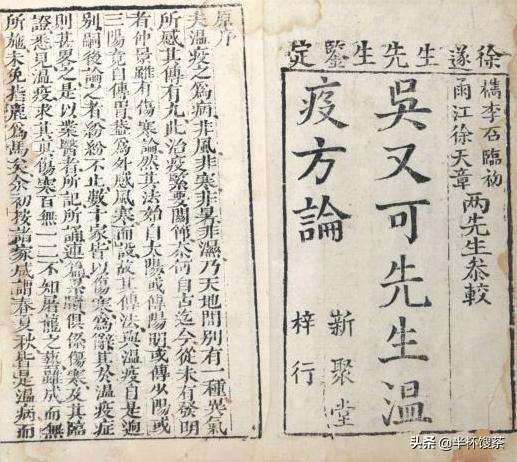 徐遂生先生鑒定
檇李石臨初
甬江徐天章
两先生叅較
吳又可先生溫
疫方論
新聚堂
梓行
原序
夫溫疫之爲病非風非寒非暑非濕乃天地間別有一種異氣
所感其傳有九此治疫緊要關節奈何自古迄今從未有發明
者仲景雖有傷寒論然其法始自太陽或傳陽明或傳少陽或
三陽竟自傳胃葢爲外感風寒而設故其傳法與溫疫自是逈
別嗣後論之者紛紛不止數十家皆以傷寒爲辭其於溫疫症
則甚畧之是以業醫者所記所誦連篇累牘俱係傷寒及其臨
證悉見溫疫求其眞傷寒百無一二不知屠龍之藝雖成而無
所施未免指鹿爲馬矣余初按諸家咸謂春夏秋皆是溫病而
头条 @半杯馊茶